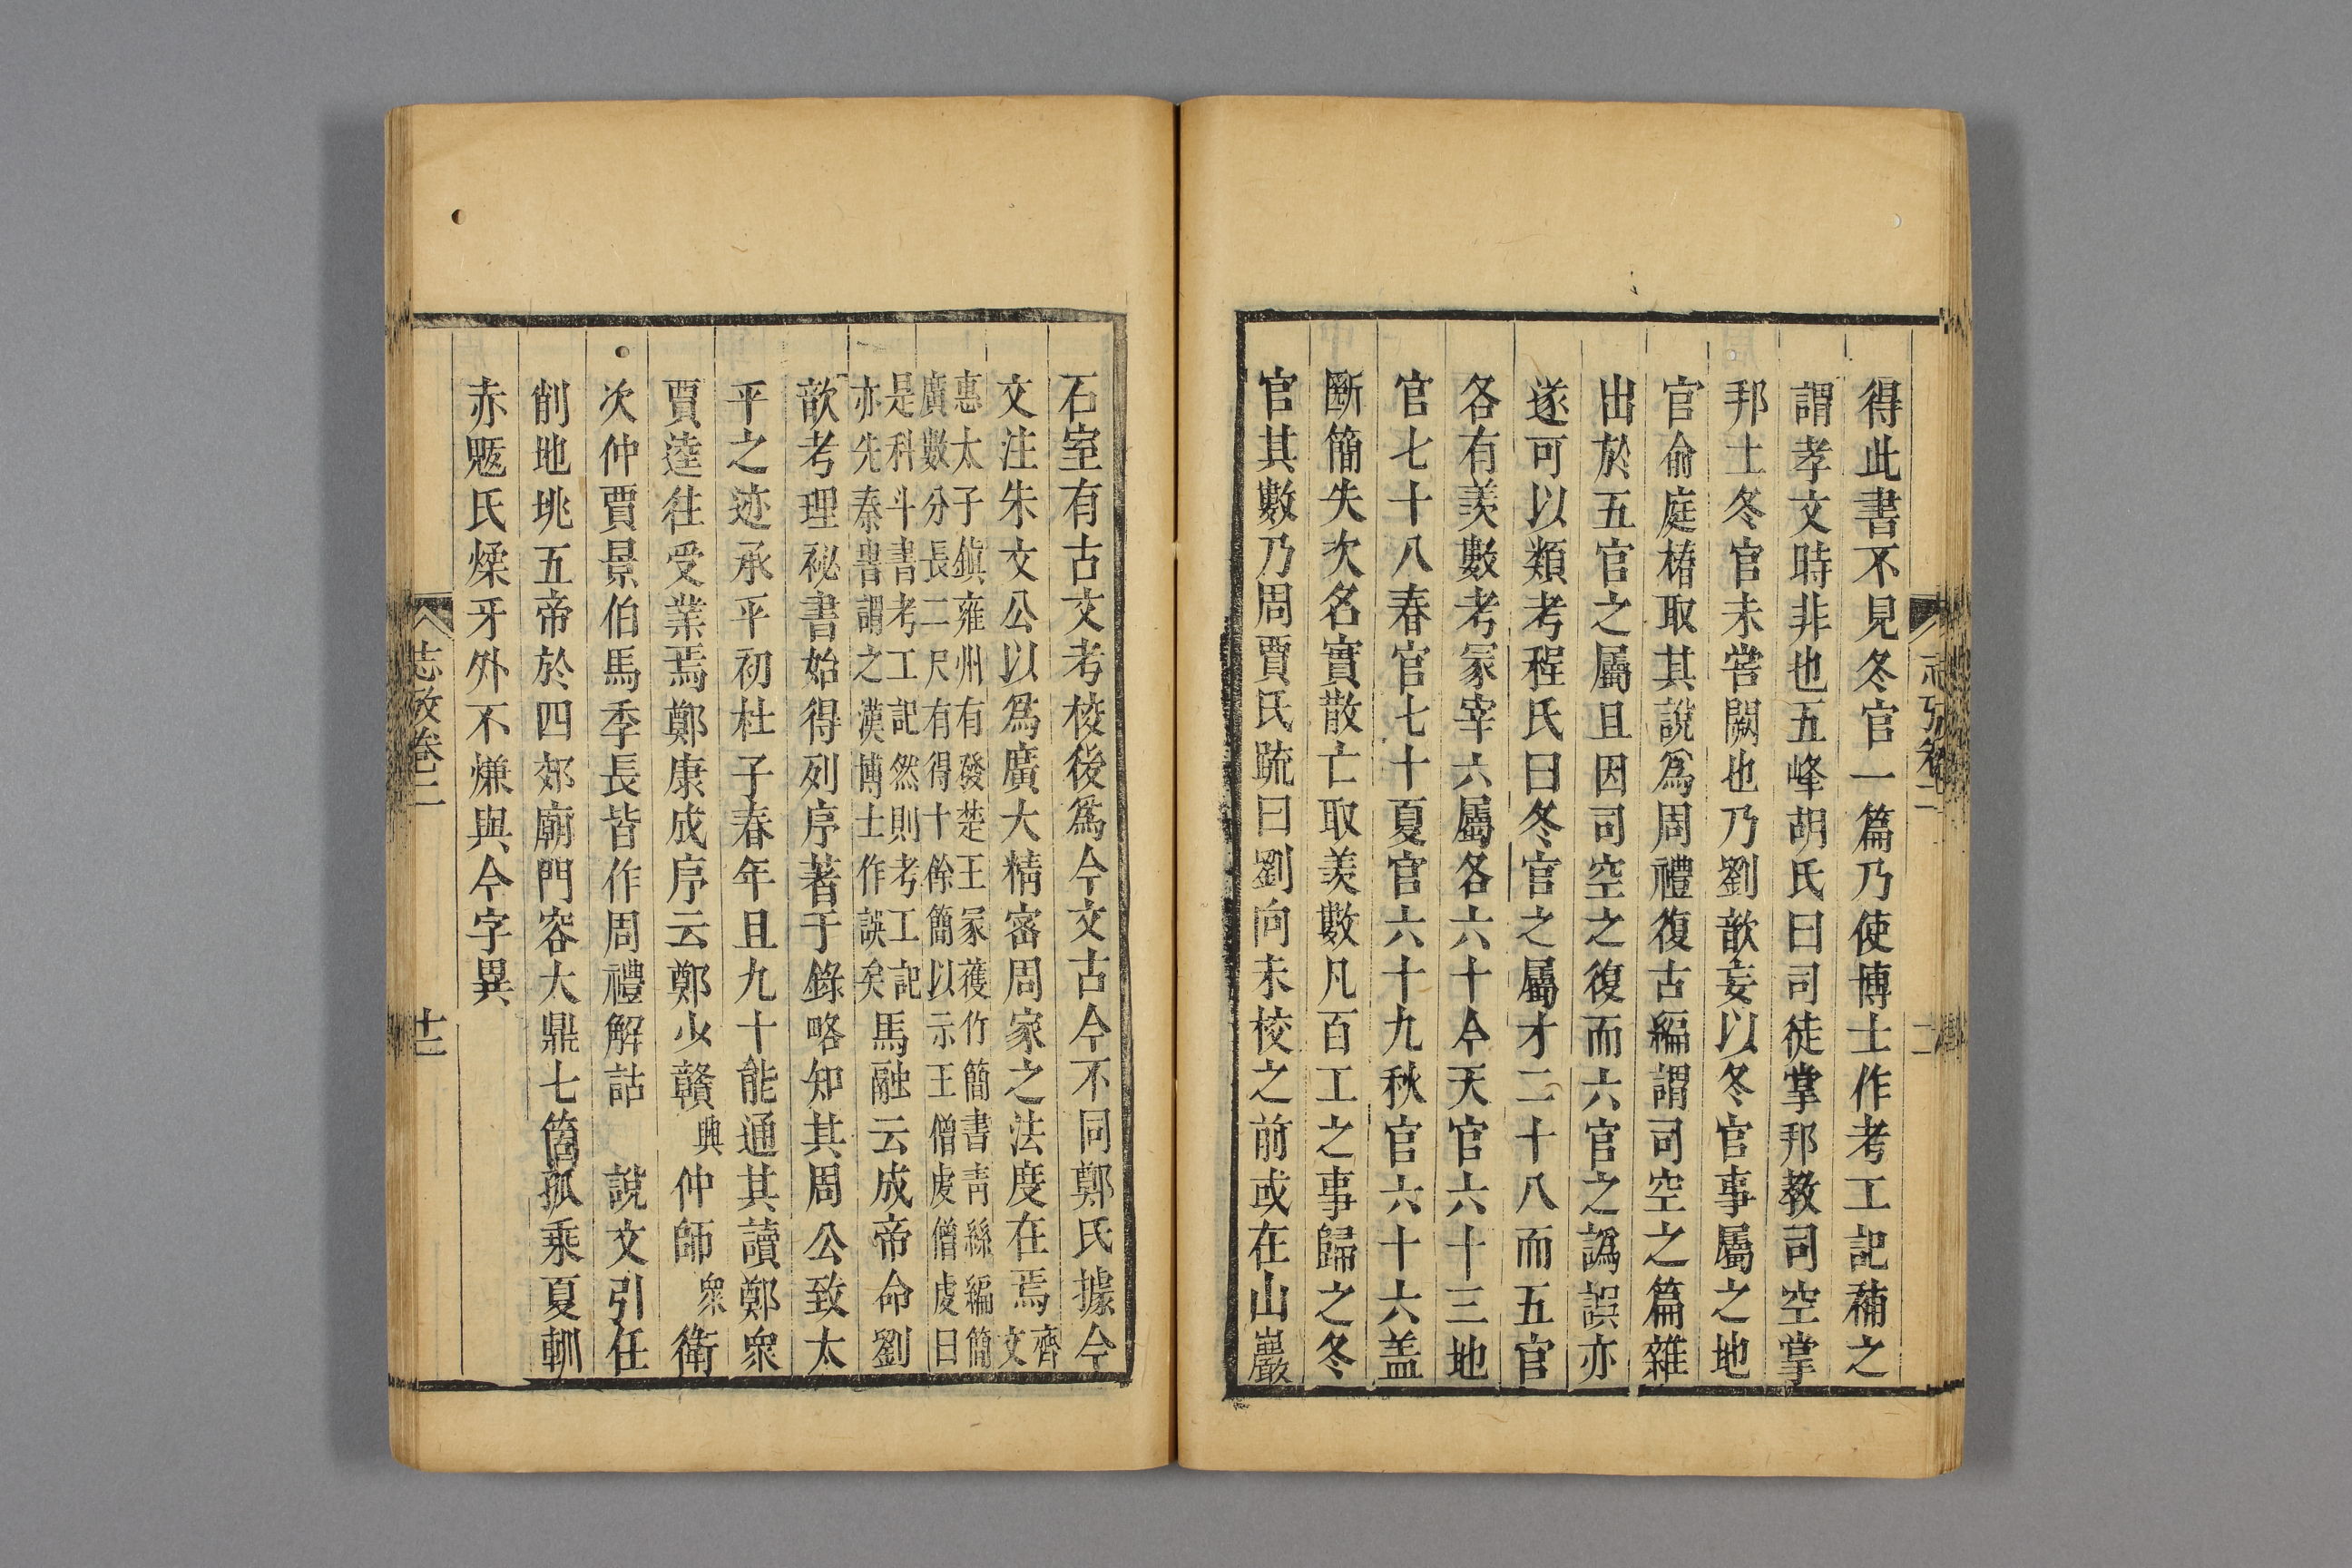 得此書不見冬官一篇乃使博士作考工記補之
謂孝文時非也五峰胡氏曰司徒掌邦教司空掌
邦土冬官未嘗闕也乃劉歆妄以冬官事屬之地
官俞庭椿取其說為周禮復古編謂司空之篇雜
出於五官之屬且因司空之復而六官之譌誤亦
遂可以類考程氏曰冬官之屬才二十八而五官
各有羡數考冡宰六屬各六十今天官六十三地
官七十八春官七十夏官六十九秋官六十六盖
斷簡失次名實散亡取羡數凡百工之事歸之冬
官其數乃周賈氏䟽曰劉向未校之前或在山巖
石室有古文考校後爲今文古今不同鄭氏據今
文注朱文公以爲廣大精密周家之法度在焉齊文
惠太子鎮雍州有發楚王冡獲竹簡書青絲編簡
廣數分長二尺有得十餘簡以示王僧虔僧虔曰
是科斗書考工記然則考工記
亦先秦書謂之漢博士作誤矣馬融云成帝命劉
歆考理祕書始得列序著于錄略知其周公致太
平之迹承平初杜子春年且九十能通其讀鄭衆
賈逵往受業焉鄭康成序云鄭少贛興仲師衆衛
次仲賈景伯馬季長皆作周禮解詁 說文引任
削地垗五帝於四郊廟門容大鼎七箇孤乘夏䡅
赤䰡氏煣牙外不㷰與今字異
志攷卷二
十二